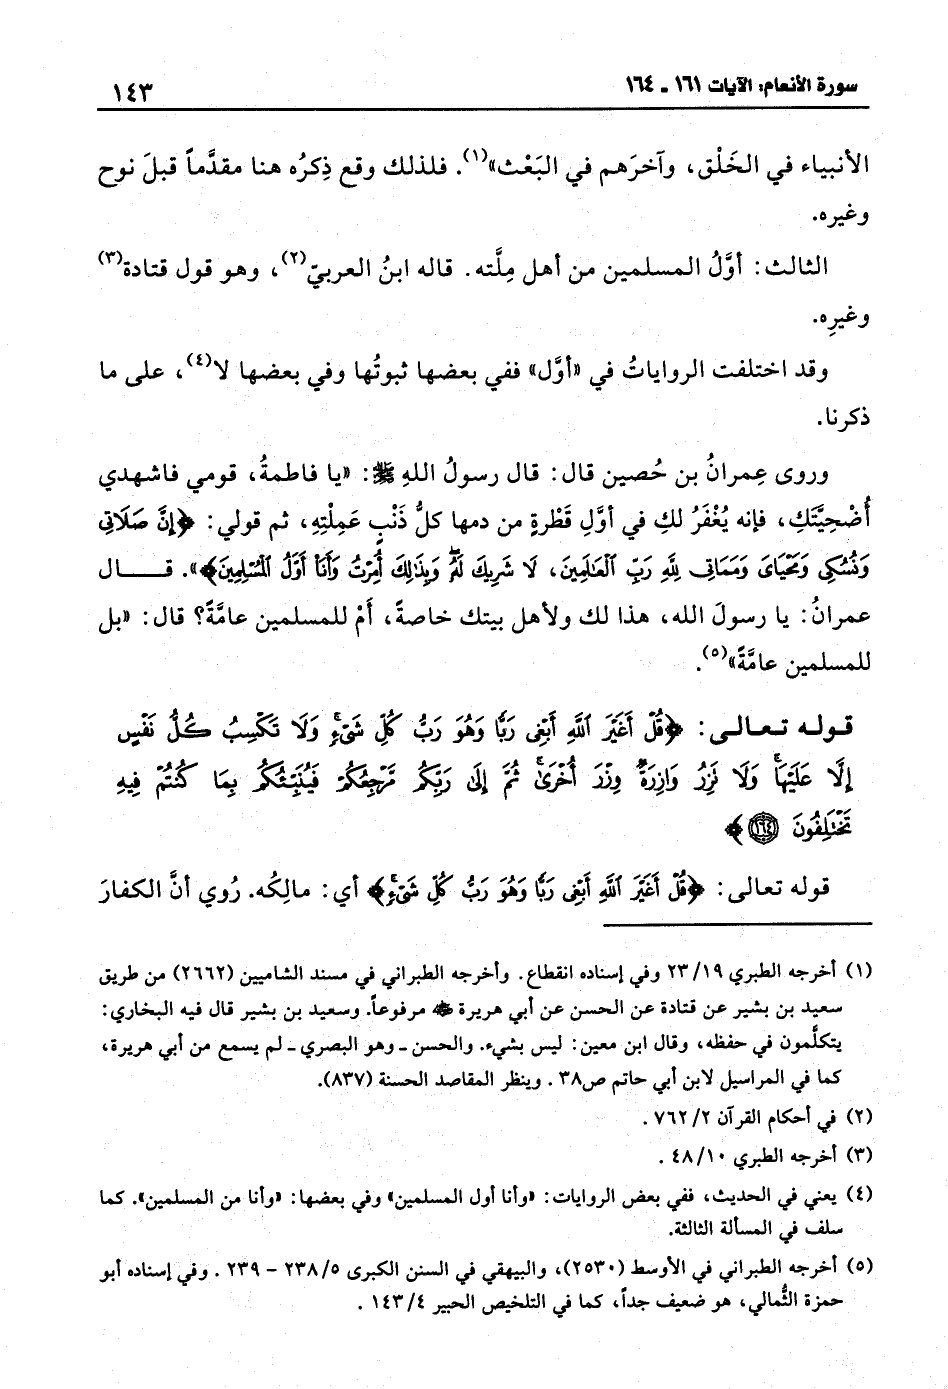 سورة الأنعام: الآيات ١٦١ ـ ١٦٤ ١٤٣
الأنبياء في الخَلْق، وآخرَهم في البَعْث»(١). فلذلك وقع ذِكرُه هنا مقدَّماً قبلَ نوح
وغيره.
الثالث: أوَّلُ المسلمين من أهل مِلَّته. قاله ابنُ العربيّ(٢)، وهو قول قتادة(٣)
وغيرِه.
وقد اختلفت الرواياتُ في «أوَّل» ففي بعضها ثبوتُها وفي بعضها لا(٤)، على ما
ذكرنا.
وروى عِمرانُ بن حُصين قال: قال رسولُ اللهِ ﷺ: «يا فاطمةُ، قومي فاشهدي
أُضْحِيَّتَكِ، فإنه يُغْفَرُ لكِ في أوَّلِ قَطْرةٍ من دمها كلُّ ذَنْبٍ عَمِلْتِهِ، ثم قولي: ﴿إِنَّ صَلَاتِى
وَنُسُكِى وَمَحْيَاىَ وَمَمَاتِى لِلَّهِ رَبِّ ٱلْعَالَمِينَ، لَا شَرِيكَ لَهُۥۖ وَبِذَٰلِكَ أُمِرْتُ وَأَنَا۠ أَوَّلُ ٱلْمُسْلِمِينَ﴾». قـــال
عمرانُ: يا رسولَ الله، هذا لك ولأهل بيتك خاصةً، أَمْ للمسلمين عامَّةً؟ قال: «بل
للمسلمين عامَّةً»(٥).
قوله تعالى: ﴿قُلْ أَغَيْرَ ٱللَّهِ أَبْغِى رَبًّا وَهُوَ رَبُّ كُلِّ شَىْءٍۚ وَلَا تَكْسِبُ كُلُّ نَفْسٍ
إِلَّا عَلَيْهَاۚ وَلَا تَزِرُ وَازِرَةٌ وِزْرَ أُخْرَىٰۚ ثُمَّ إِلَىٰ رَبِّكُم مَّرْجِعُكُمْ فَيُنَبِّئُكُم بِمَا كُنتُمْ فِيهِ
تَخْتَلِفُونَ ١٦٤﴾
قوله تعالى: ﴿قُلْ أَغَيْرَ ٱللَّهِ أَبْغِى رَبًّا وَهُوَ رَبُّ كُلِّ شَىْءٍۚ﴾ أي: مالِكُه. رُوي أنَّ الكفارَ
(١) أخرجه الطبري ٢٣/١٩ وفي إسناده انقطاع. وأخرجه الطبراني في مسند الشاميين (٢٦٦٢) من طريق
سعيد بن بشير عن قتادة عن الحسن عن أبي هريرة ﵁ مرفوعاً. وسعيد بن بشير قال فيه البخاري:
يتكلَّمون في حفظه، وقال ابن معين: ليس بشيء. والحسن ـ وهو البصري ـ لم يسمع من أبي هريرة،
كما في المراسيل لابن أبي حاتم ص٣٨. وينظر المقاصد الحسنة (٨٣٧).
(٢) في أحكام القرآن ٢/ ٧٦٢.
(٣) أخرجه الطبري ١٠/ ٤٨.
(٤) يعني في الحديث، ففي بعض الروايات: «وأنا أول المسلمين» وفي بعضها: «وأنا من المسلمين». كما
سلف في المسألة الثالثة.
(٥) أخرجه الطبراني في الأوسط (٢٥٣٠)، والبيهقي في السنن الكبرى ٥/ ٢٣٨ - ٢٣٩. وفي إسناده أبو
حمزة الثُّمالي، هو ضعيف جداً، كما في التلخيص الحبير ٤/ ١٤٣.